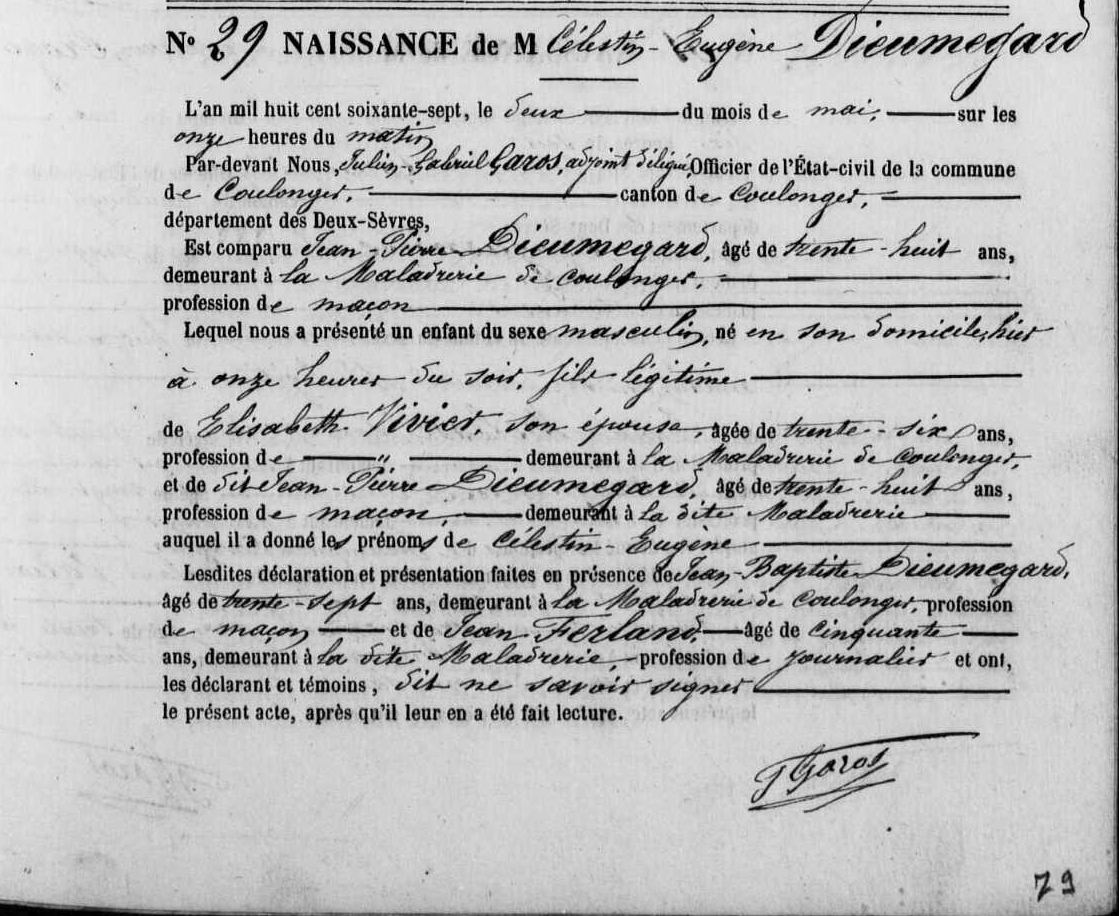 N° 29 NAISSANCE de M Célestin-Eugène Dieumegard
L'an mil huit cent soixante-sept, le deux du mois de mai, sur les
onze heures du matin
Par-devant Nous, Julien-Gabriel Garos, adjoint délégué, Officier de l'État-civil de la commune
de Coulonges, canton de Coulonges,
département des Deux-Sèvres,
Est comparu Jean-Pierre Dieumegard, âgé de trente-huit ans,
demeurant à la Maladrerie de Coulonges,
profession de maçon
Lequel nous a présenté un enfant du sexe masculin, né en son domicile, hier
à onze heures du soir, fils légitime
de Elisabeth Vivier, son épouse, âgée de trente-six ans,
profession de " demeurant à la Maladrerie de Coulonges,
et de dit Jean-Pierre Dieumegard, âgé de trente-huit ans,
profession de maçon, demeurant à la dite Maladrerie
auquel il a donné les prénoms de Célestin-Eugène
Lesdites déclaration et présentation faites en présence de Jean-Baptiste Dieumegard,
âgé de trente-sept ans, demeurant à la Maladrerie de Coulonges, profession
de maçon et de Jean Ferland, âgé de cinquante
ans, demeurant à la dite Maladrerie, profession de journalier et ont,
les déclarant et témoins, dit ne savoir signer
le présent acte, après qu'il leur en a été fait lecture.
J Garos
29